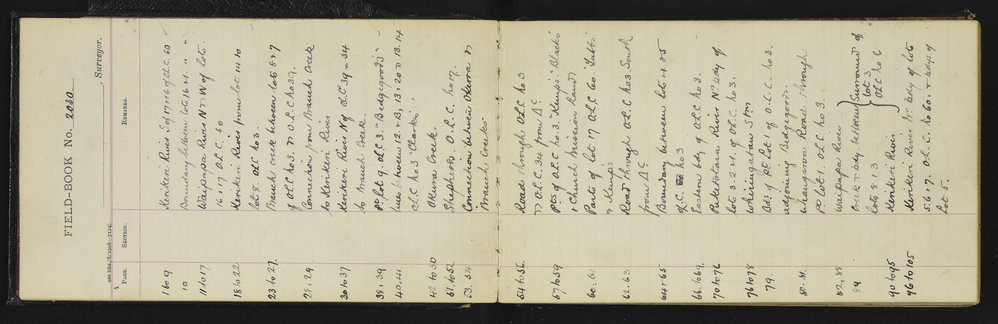 FIELD-BOOK No. 2020
Surveyor.
PAGE. SECTION. REMARKS.
1 to 9 Kerikeri River S of pt of O.L.C. 60
10 Boundary between lots 16 & 17 "
11 to 17 Waipapa River N & W of lots
16 & 17 OLC 60
18 to 22 Kerikeri River from lot 14 to
lot 8. OLC No 3
23 to 27 Branch creek between lots 8 & 7
of OLC No 3. & O.L.C No 39.
28. 29 Connection from Branch Creek
to Kerikeri River
30 to 37 Kerikeri River N of OLC 39 & 34
to Branch Creek
38. 39 Pt lot 9. OLC 3. "Bedggood's"
40. 41 lines between 12 & 13, 13 & 20 & 13. 14
OLC No 3 "Clarkes"
42 to 50 Okura Creek
51 to 52 Shepherds O.L.C. No 17.
53. 54 Connection between Okura &
Branch Creeks
54 to 56. Road through OLC No 3
& O.L.C. 34 from
57 to 59 Pts of OLC No 3. "Kemps" Blacks
& Church Mission Land
60. 61 Parts of lot 17 OLC 60. Tubbs
& Kemps
62. 63 Road through OLC No 3. South
from
64 & 65 Boundary between lots 4 & 5
O.L.C. No 3
66 to 69. Eastern bdy of OLC No 3.
70 to 76 Puketotara River N bdy of
lots 3. 2 & 1. of OLC. No 3.
76 to 78 Whiringatau Stm
79. Bdy of pt lot 1 of O.L.C. No 3.
adjoining Bedggoods.
80. 81. Whangaroa Road through
pt lot 1. OLC No 3.
82. 88 Waipapa River
89 Creek & bdy between
lots 8 & 3
Surround of
lot 3
OLC No 6
90 to 95 Kerikeri River
96 to 105 Kerikeri River N bdy of lots
5. 6 & 7. OLC. No 60. & bdys of
lot 5.